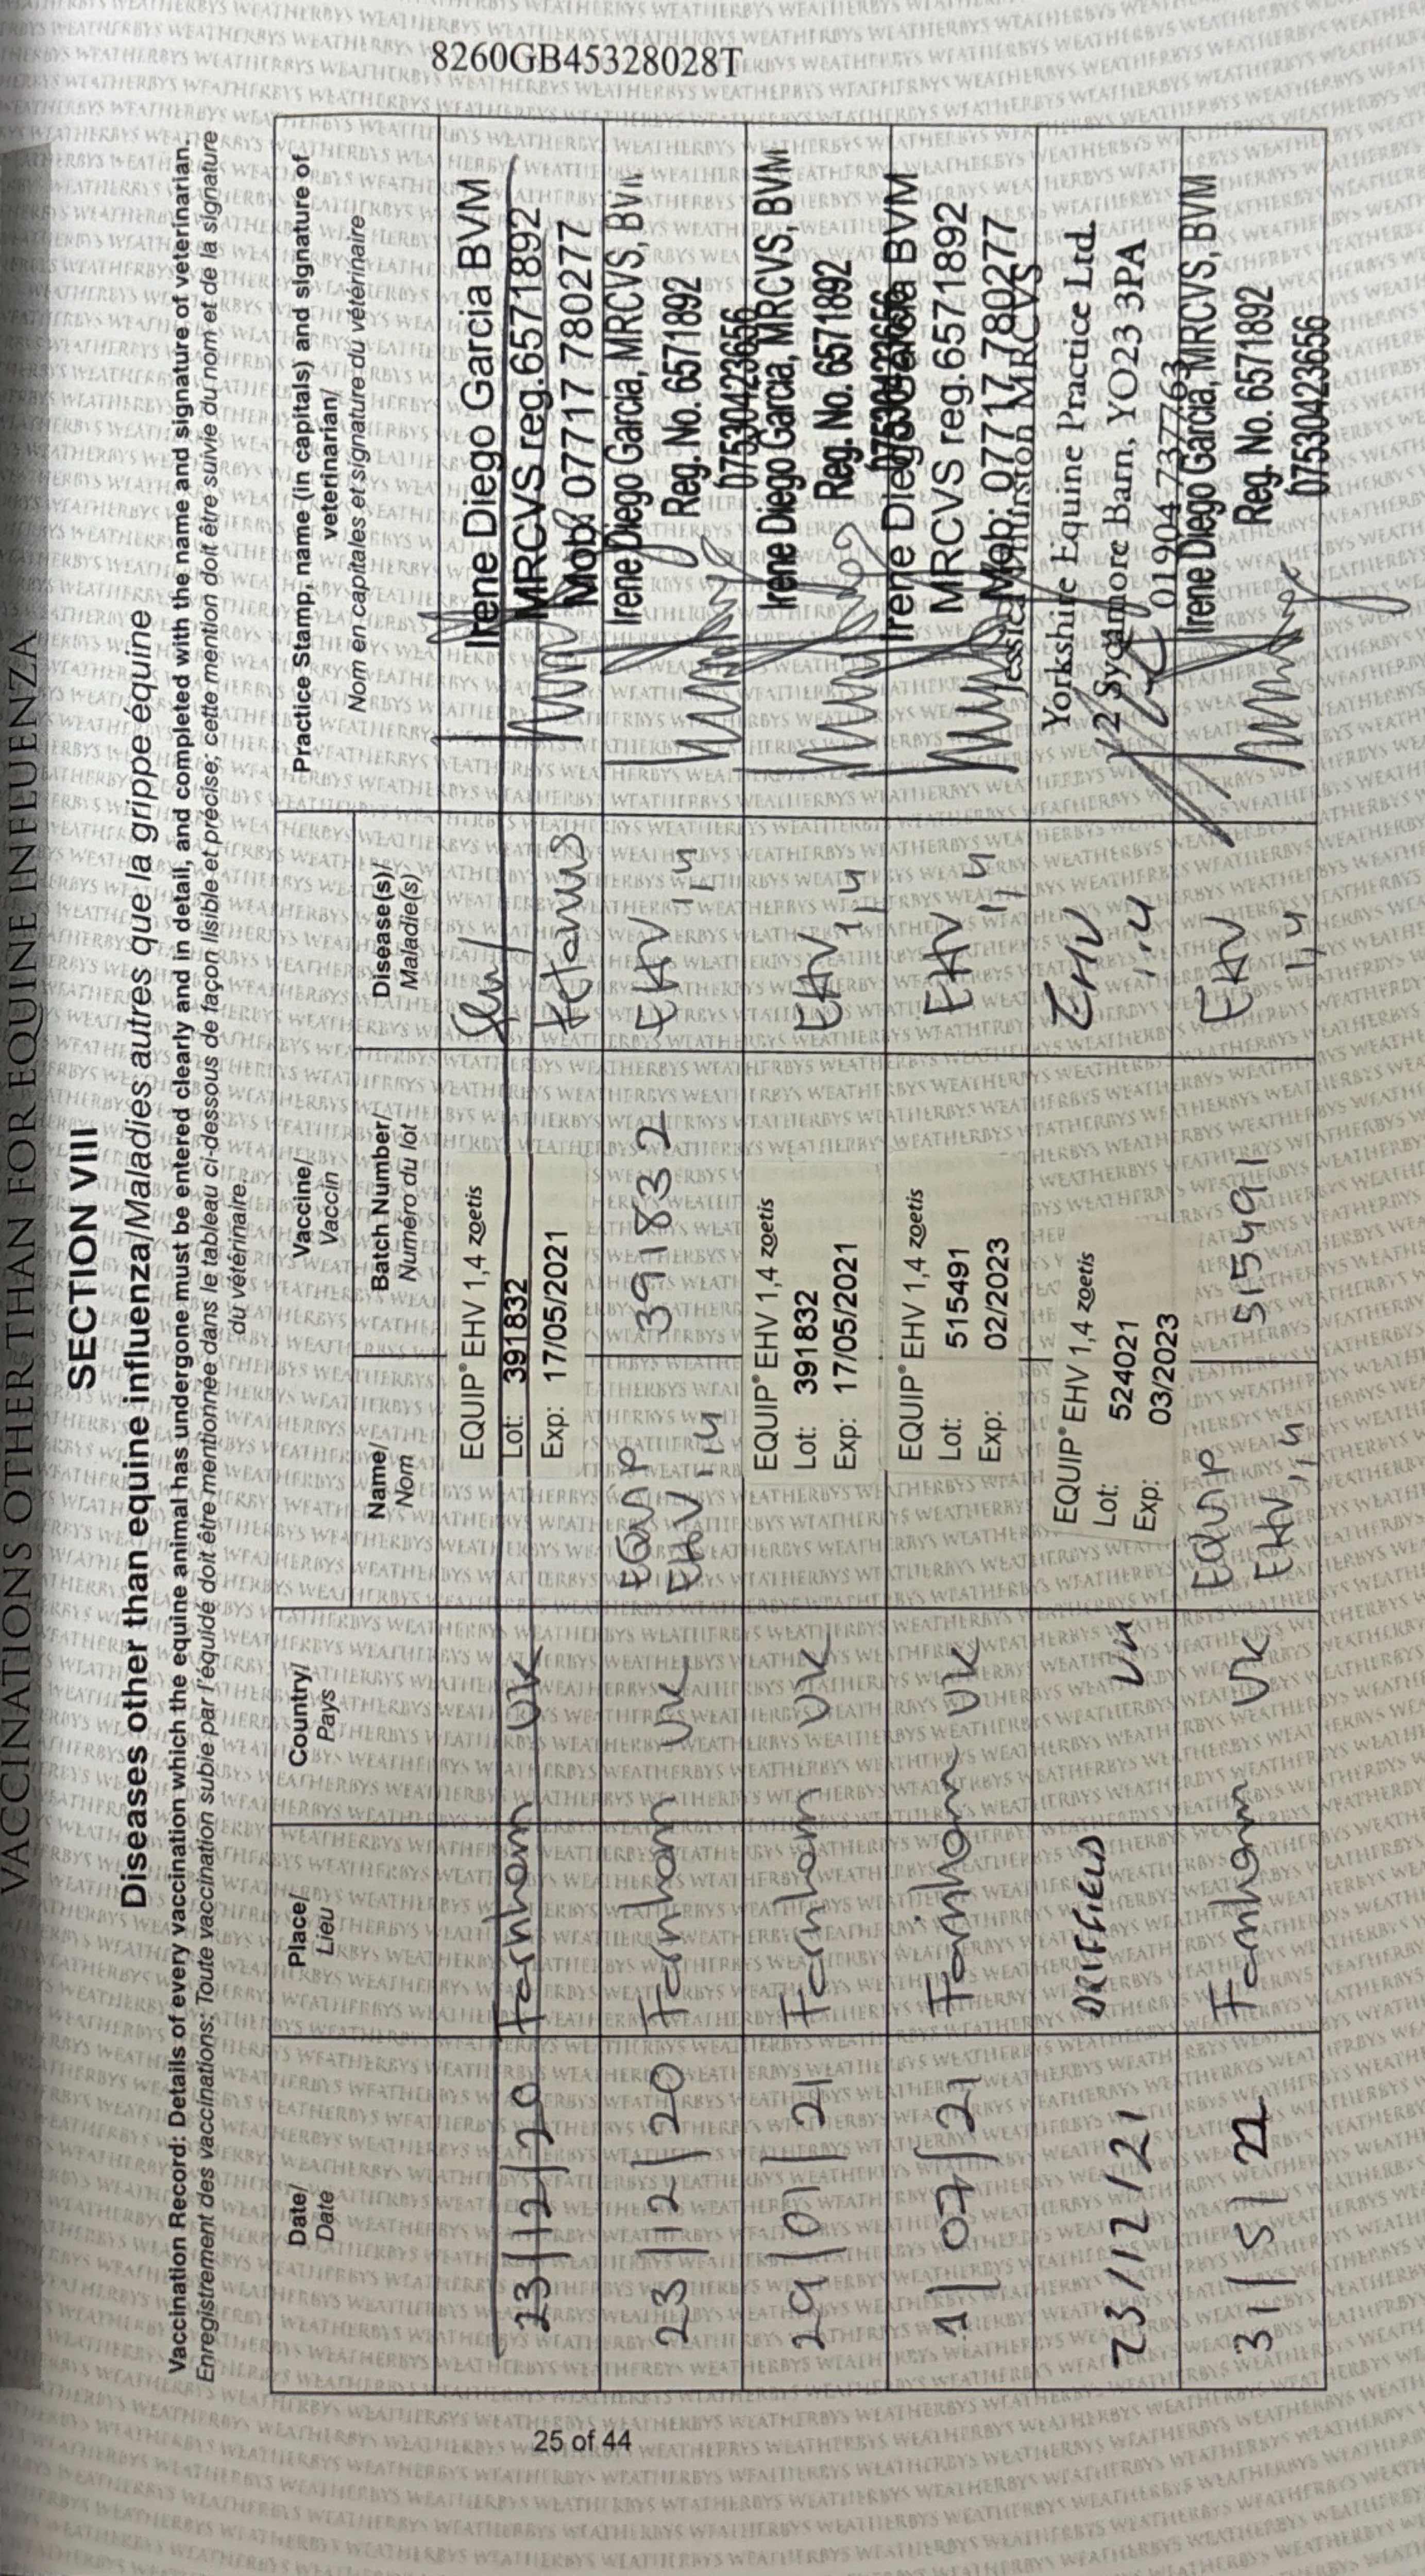 VACCINATIONS OTHER THAN FOR EQUINE INFLUENZA
SECTION VIII
Diseases other than equine influenza/Maladies autres que la grippe équine
Vaccination Record: Details of every vaccination which the equine animal has undergone must be entered clearly and in detail, and completed with the name and signature of veterinarian.
Enregistrement des vaccinations: Toute vaccination subie par l'équidé doit être mentionnée dans le tableau ci-dessous de façon lisible et précise; cette mention doit être suivie du nom et de la signature
du vétérinaire.
Date/
Date
Place/
Lieu
Country/
Pays
Vaccine/
Vaccin
Name/
Nom
Batch Number/
Numéro du lot
Disease(s)/
Maladie(s)
Practice Stamp, name (in capitals) and signature of
veterinarian/
Nom en capitales et signature du vétérinaire
23/12/20 Farnham UK
EQUIP® EHV 1,4 zoetis
Lot: 391832
Exp: 17/05/2021
flu/
tetanus
Irene Diego Garcia BVM
MRCVS reg.6571892
Mob: 07717 780277
23/12/20 Farnham UK
EQUIP
EHV 1,4
391832
EHV 1,4
Irene Diego Garcia, MRCVS, BVM
Reg. No. 6571892
07530423656
29/01/21 Farnham UK
EQUIP® EHV 1,4 zoetis
Lot: 391832
Exp: 17/05/2021
EHV 1,4
Irene Diego Garcia, MRCVS, BVM
Reg. No. 6571892
07530423656
1/07/21 Farnham UK
EQUIP® EHV 1,4 zoetis
Lot: 515491
Exp: 02/2023
EHV 1,4
Irene Diego Garcia BVM
MRCVS reg.6571892
Mob: 07717 780277
23/12/21 DRIFFIELD UK
EQUIP® EHV 1,4 zoetis
Lot: 524021
Exp: 03/2023
EHV 1,4
Jessica Thurston MRCVS
Yorkshire Equine Practice Ltd.
2 Sycamore Barn, YO23 3PA
01904 737763
31/5/22 Farnham UK
EQUIP
EHV 1,4
515491
EHV 1,4
Irene Diego Garcia, MRCVS, BVM
Reg. No. 6571892
07530423656
25 of 44
8260GB45328028T